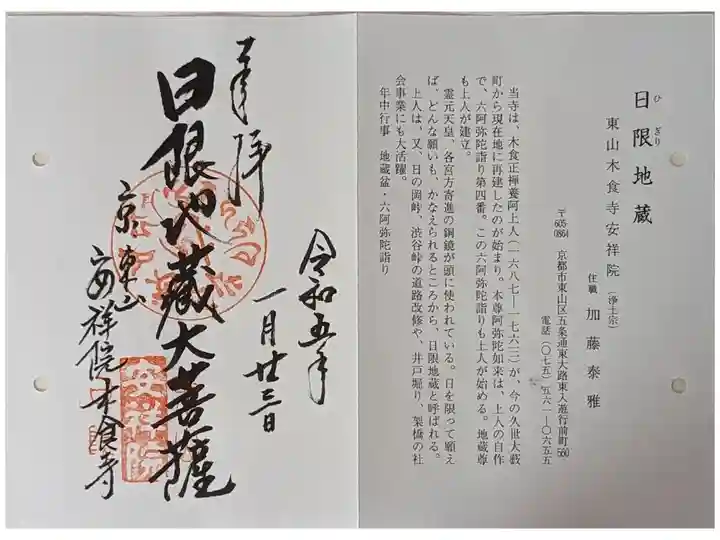 日限地蔵
ひぎり
東山木食寺安祥院（浄土宗）
住職 加藤泰雅
〒605-0864 京都市東山区五条通東大路東入遊行前町560
電話（〇七五）五六一―〇六五五
当寺は、木食正禅養阿上人（一六八七―一七六三）が、今の久世大藪
町から現在地に再建したのが始まり。本尊阿弥陀如来は、上人の自作
で、六阿弥陀詣り第四番。この六阿弥陀詣りも上人が始める。地蔵尊
も上人が建立。
霊元天皇、各宮方寄進の銅鏡が頭に使われている。日を限って願え
ば、どんな願いも、かなえられるところから、日限地蔵と呼ばれる。
上人は、又、日の岡峠、渋谷峠の道路改修や、井戸堀り、架橋の社
会事業にも大活躍。
年中行事 地蔵盆・六阿弥陀詣り
令和五年
一月廿三日
奉拝
日限地蔵大菩薩
京東山
安祥院木食寺